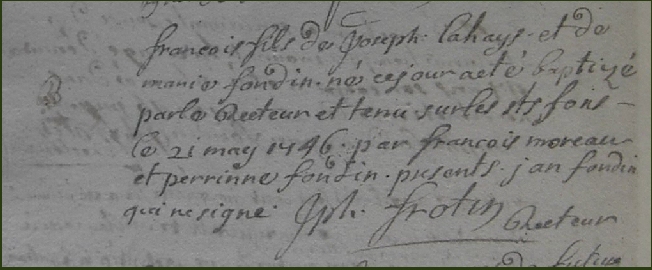 francois fils de Joseph lahays et de
marie fondin. né ce jour a eté baptizé
par le Recteur et tenu sur les sts fons -
le 21 may 1746. par francois moreau
et perrinne fondin. presents. jan fondin
qui ne signe. Jph. frotin Recteur